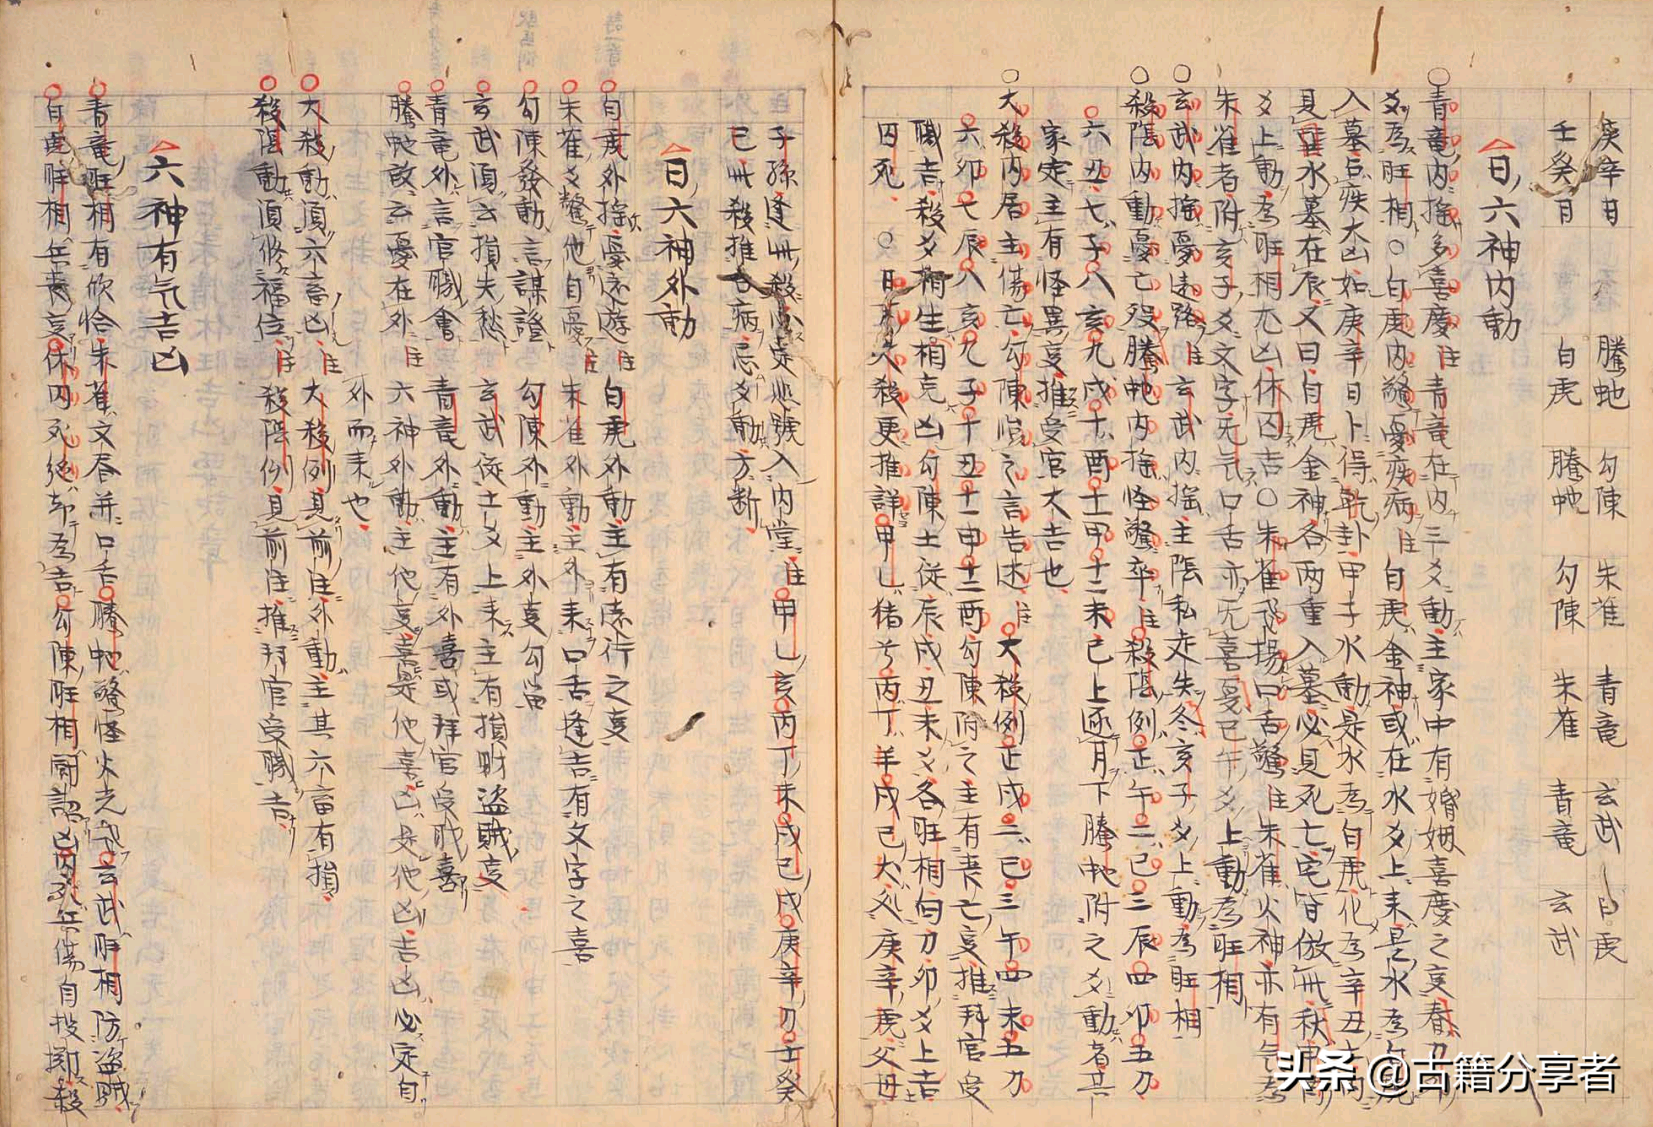 庚辛日 騰虵 勾陳 朱雀 青竜 玄武 白虎
壬癸日 白虎 騰虵 勾陳 朱雀 青竜 玄武
日六神内動
青竜内搖多喜慶 注 青竜在内三爻動主家中有婚姻喜慶之事春
爻為旺相○白虎内驚憂疾病 注 白虎金神或在水爻上来是水為
入墓占疾大凶如庚辛日卜得乾卦甲子水動是水為白虎化為辛丑土
見 水墓在辰又曰白虎金神各兩重入墓必見死亡宅皆倣此秋
爻上動為旺相尤凶休囚吉○朱雀飛揚口舌驚 注 朱雀火神亦有气為
朱雀者附亥子爻文字无气口舌亦无喜憂巳午爻上動為旺相
玄武内搖憂遠路 注 玄武内搖主陰私走失冬亥子爻上動為旺相
殺陰内動憂亡歿騰虵内搖怪驚卒 注 殺陰例正午二巳三辰四卯五刀
六丑七子八亥九戌十酉十一甲十二未已上逐月下騰虵附之爻動者其
家定主有怪異事推受官大吉也
大殺内居主傷亡勾陳 之言告述 注 大殺例正戌二巳三午四未五刀
六卯七辰八亥九子十丑十一申十二酉勾陳附之主有喪亡事推拜官受
職吉殺爻相生相克凶勾陳土従辰戌丑未爻各旺相句刀卯爻上吉
囚死 ○日 大殺更推詳甲乙猪 丙丁羊戌己犬 庚辛虎父母
子孫逢此殺 定悲號入内堂 注 甲乙亥丙丁未戌己戌庚辛刀壬癸
巳此殺推占病忌爻動方断
日六神外動
白虎外搖憂遠遊 注 白虎外動主有遠行之事
朱雀爻驚他自憂 注 朱雀外動主外来口舌逢吉有文字之喜
勾陳發動言謀證 勾陳外動主外事勾
玄武須云損失愁 玄武従土爻上来主有損財盗賊事
青竜外言官職會 青竜外動主有外喜或拜官受職喜
騰虵敌云憂在外 注 六神外動主他事喜是他喜凶是他凶吉凶必定自
外而来也
大殺動須六畜凶 注 大殺例見前注外動主其六畜有損
殺陰動須修福位 注 殺陰例見前注推拜官受職吉
六神有气吉凶
青竜旺相有欣恰朱雀文春并口舌騰虵驚怪火光 玄武旺相防盗賊
白虎旺相兵喪事休囚死絶却為吉勾陳旺相聞 凶内死兵傷自投 殺
头条 @古籍分享者